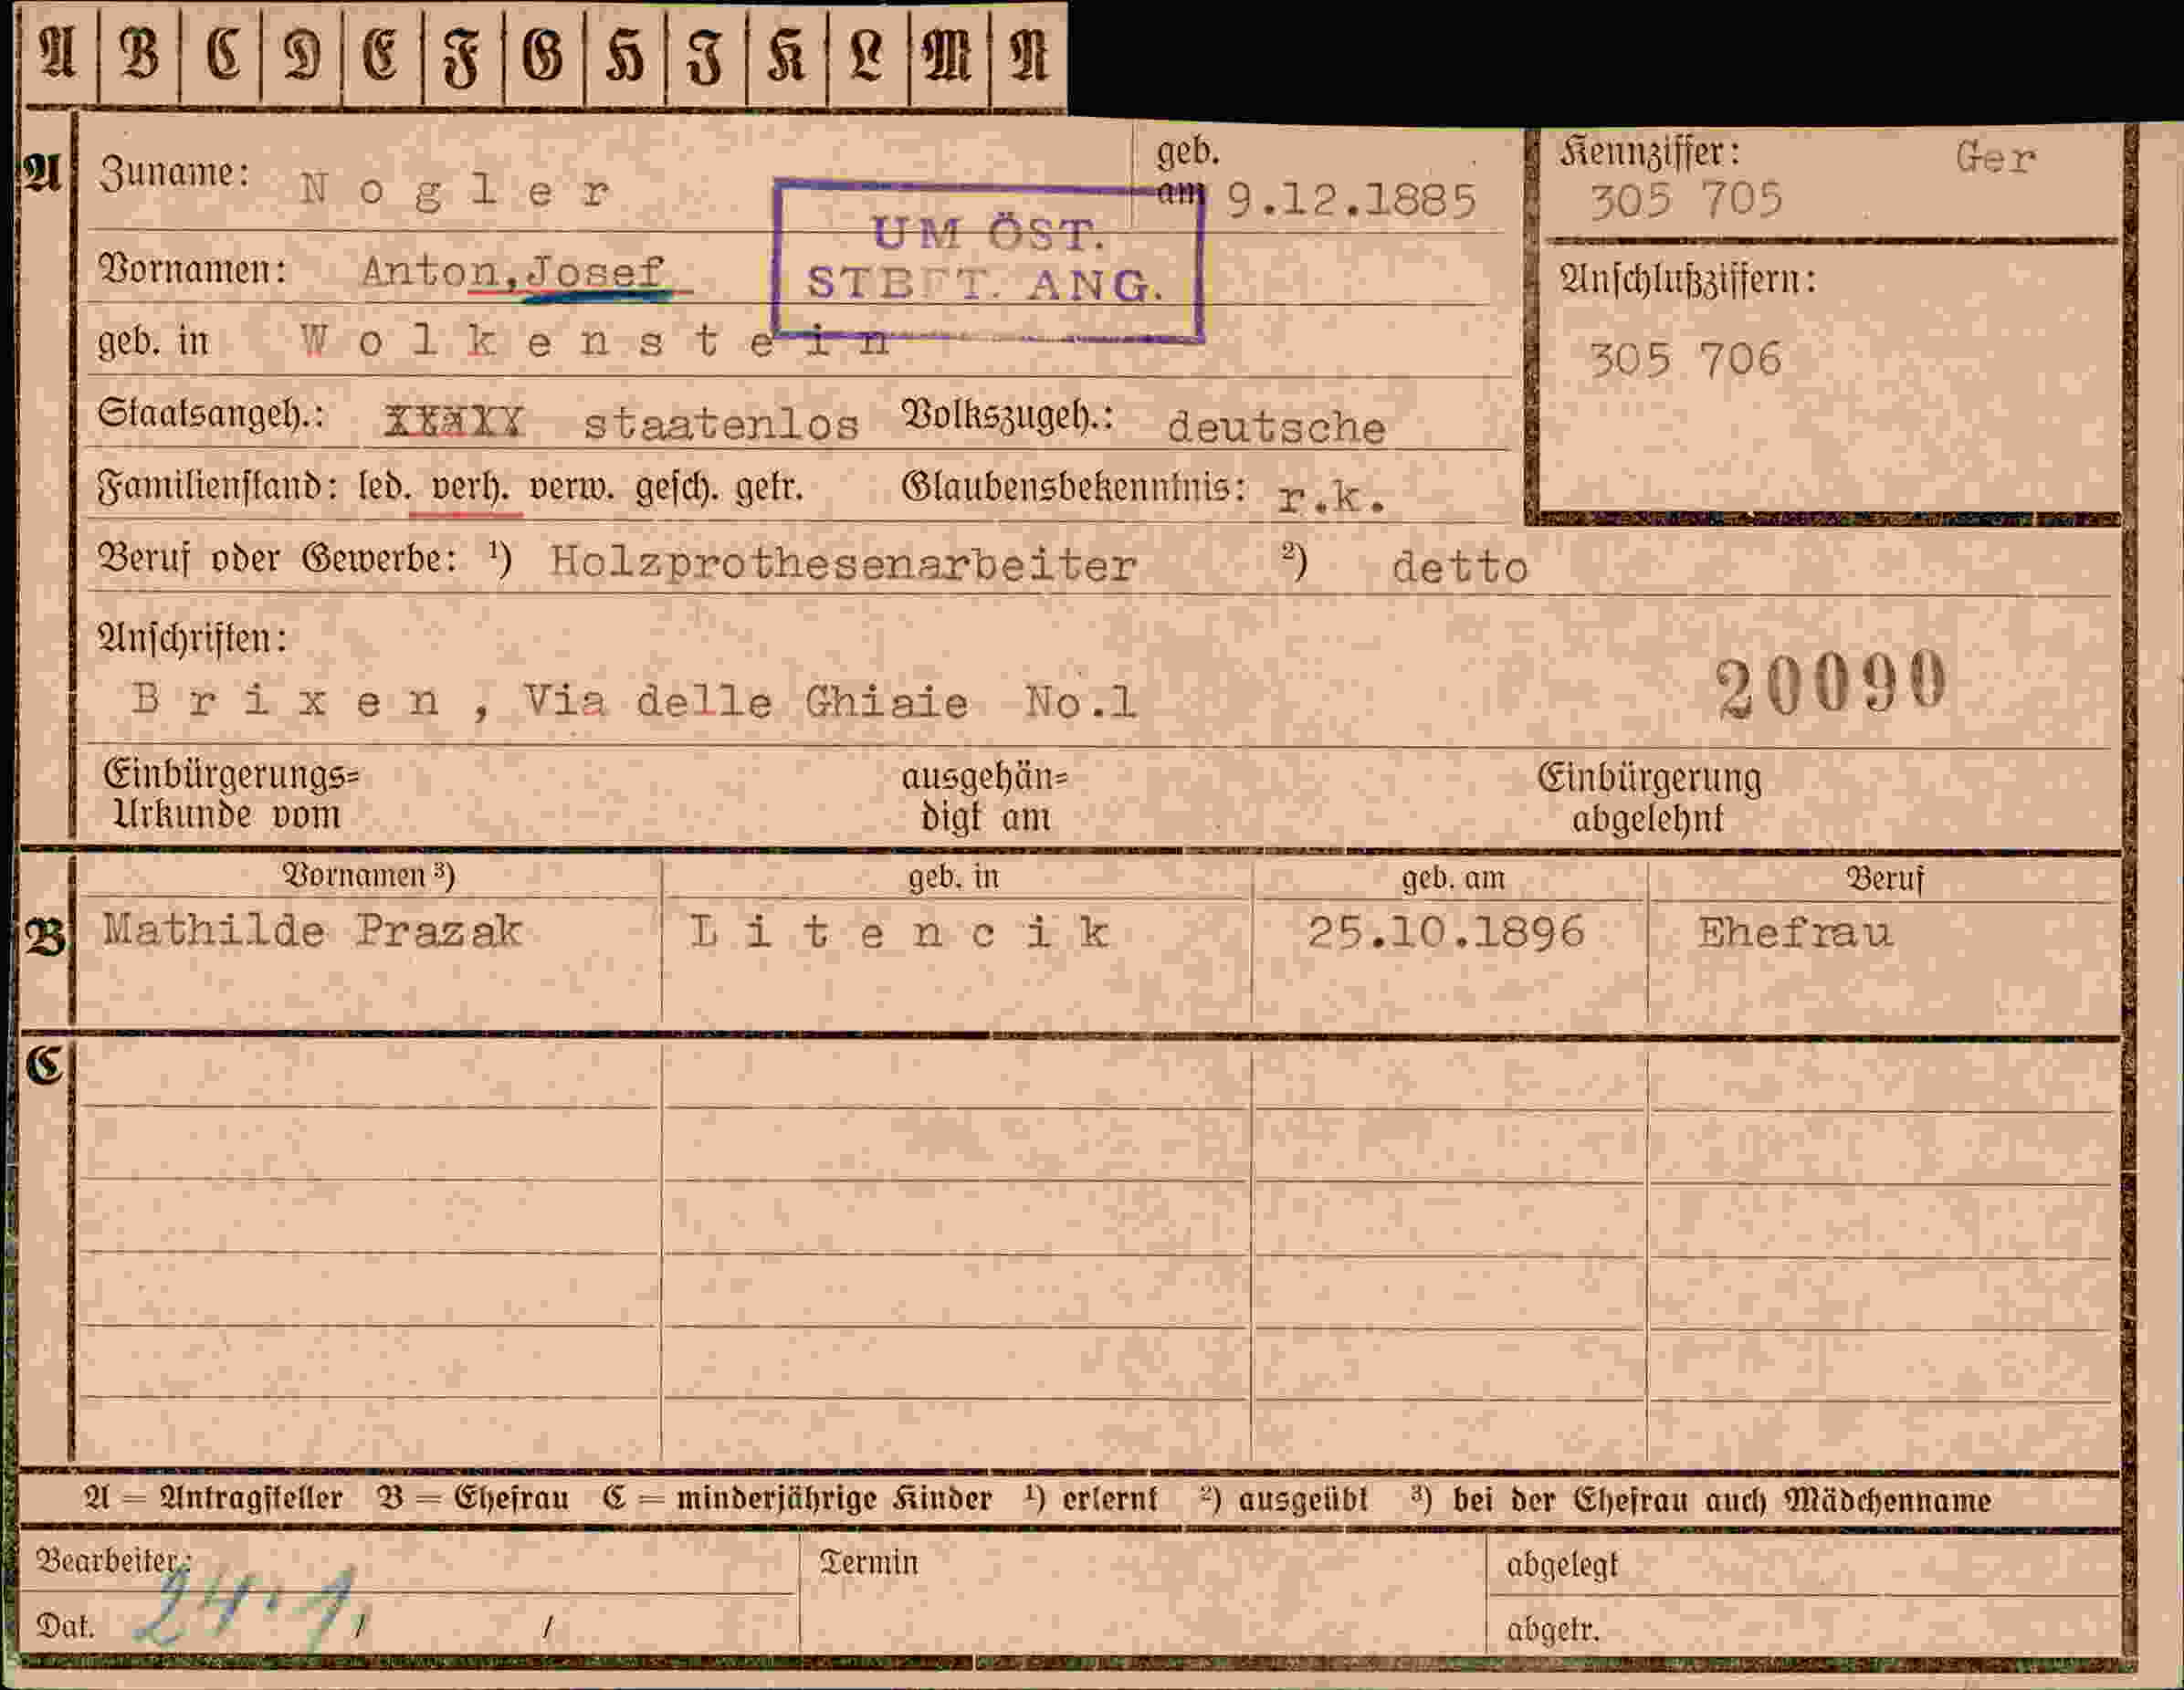 A B C D E F G H I K L M N
A
Zuname: Nogler geb. am 9.12.1885
Kennziffer: Ger
305 705
UM ÖST.
STBFT. ANG.
Vornamen: Anton, Josef
Anschlußziffern:
305 706
geb. in Wolkenstein
Staatsangeh.: staatenlos Volkszugeh.: deutsche
Familienstand: led. verh. verw. gesch. getr. Glaubensbekenntnis: r.k.
Beruf oder Gewerbe: ¹) Holzprothesenarbeiter ²) detto
Anschriften:
Brixen, Via delle Ghiaie No.1
20090
Einbürgerungs= Urkunde vom ausgehän= digt am Einbürgerung abgelehnt
B
Vornamen ³) geb. in geb. am Beruf
Mathilde Prazak Litencik 25.10.1896 Ehefrau
C
A = Antragsteller B = Ehefrau C = minderjährige Kinder ¹) erlernt ²) ausgeübt ³) bei der Ehefrau auch Mädchenname
Bearbeiter: Termin abgelegt
Dat. 24.1. / / abgetr.